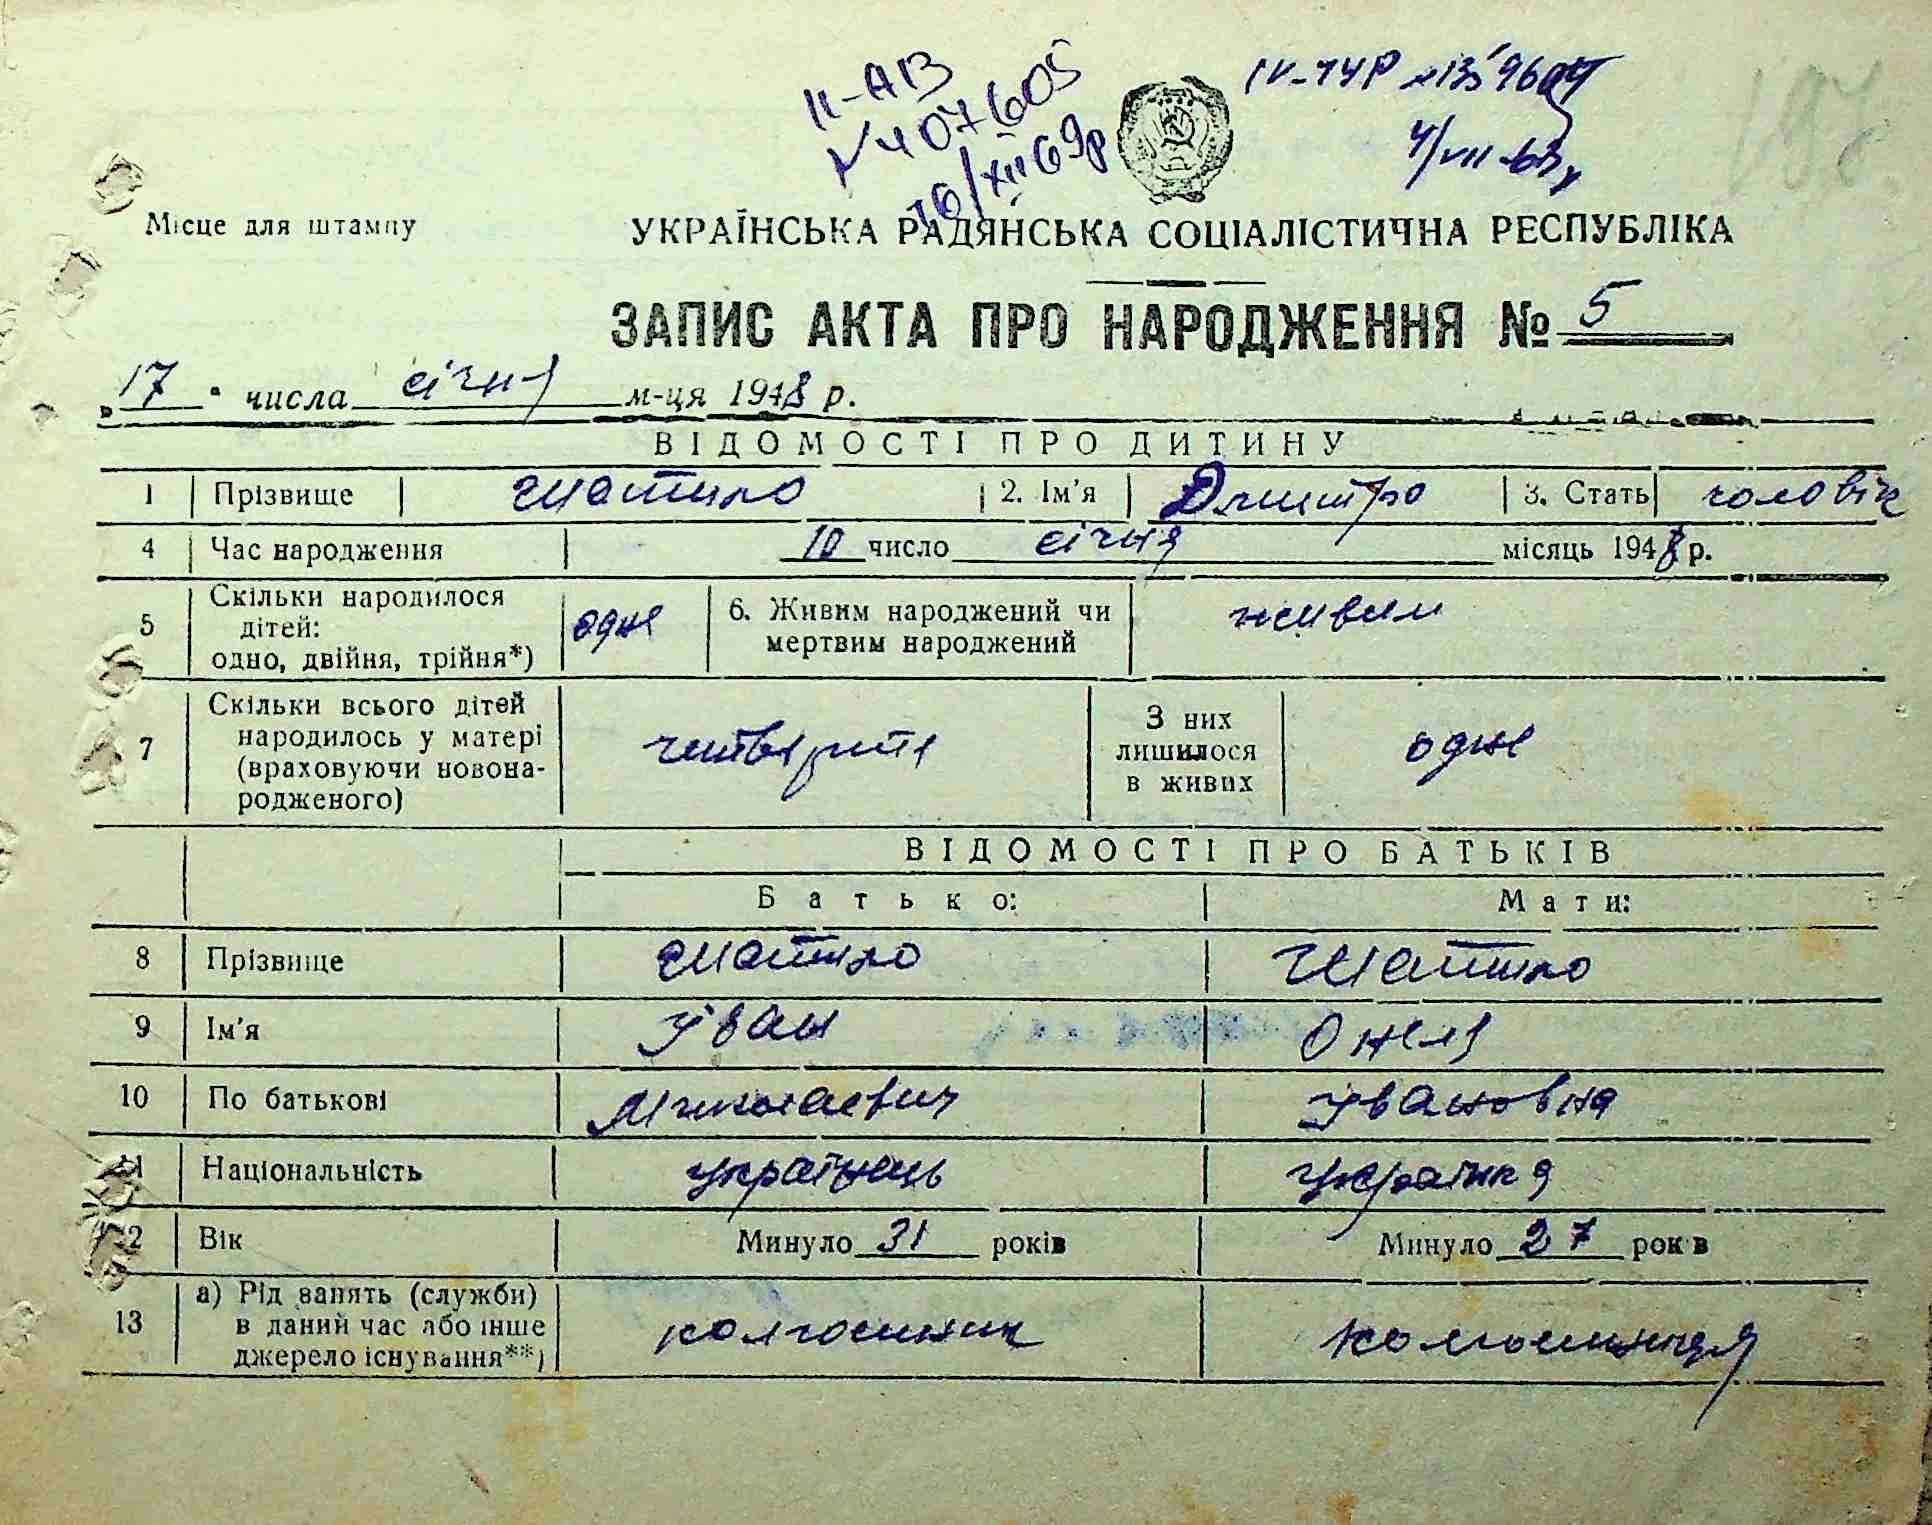 ІІ-АВ
№ 407605
16/XII 69р
4/VII-63р
197
Місце для штампу
УКРАЇНСЬКА РАДЯНСЬКА СОЦІАЛІСТИЧНА РЕСПУБЛІКА
ЗАПИС АКТА ПРО НАРОДЖЕННЯ № 5
„17" числа січня м-ця 1948 р.
ВІДОМОСТІ ПРО ДИТИНУ
1 Прізвище Шатило 2. Ім'я Дмитро 3. Стать чоловік
4 Час народження 10 число січня місяць 1948 р.
5 Скільки народилося дітей: одно, двійня, трійня*) одне 6. Живим народжений чи мертвим народжений живим
7 Скільки всього дітей народилось у матері (враховуючи новонародженого) четверте З них лишилося в живих одне
ВІДОМОСТІ ПРО БАТЬКІВ
Батько: Мати:
8 Прізвище Шатило Шатило
9 Ім'я Іван
10 По батькові Миколаєвич Івановна
11 Національність українець українка
12 Вік Минуло 31 років Минуло 27 років
13 а) Рід занять (служби) в даний час або інше джерело існування**) колгоспник колгоспниця